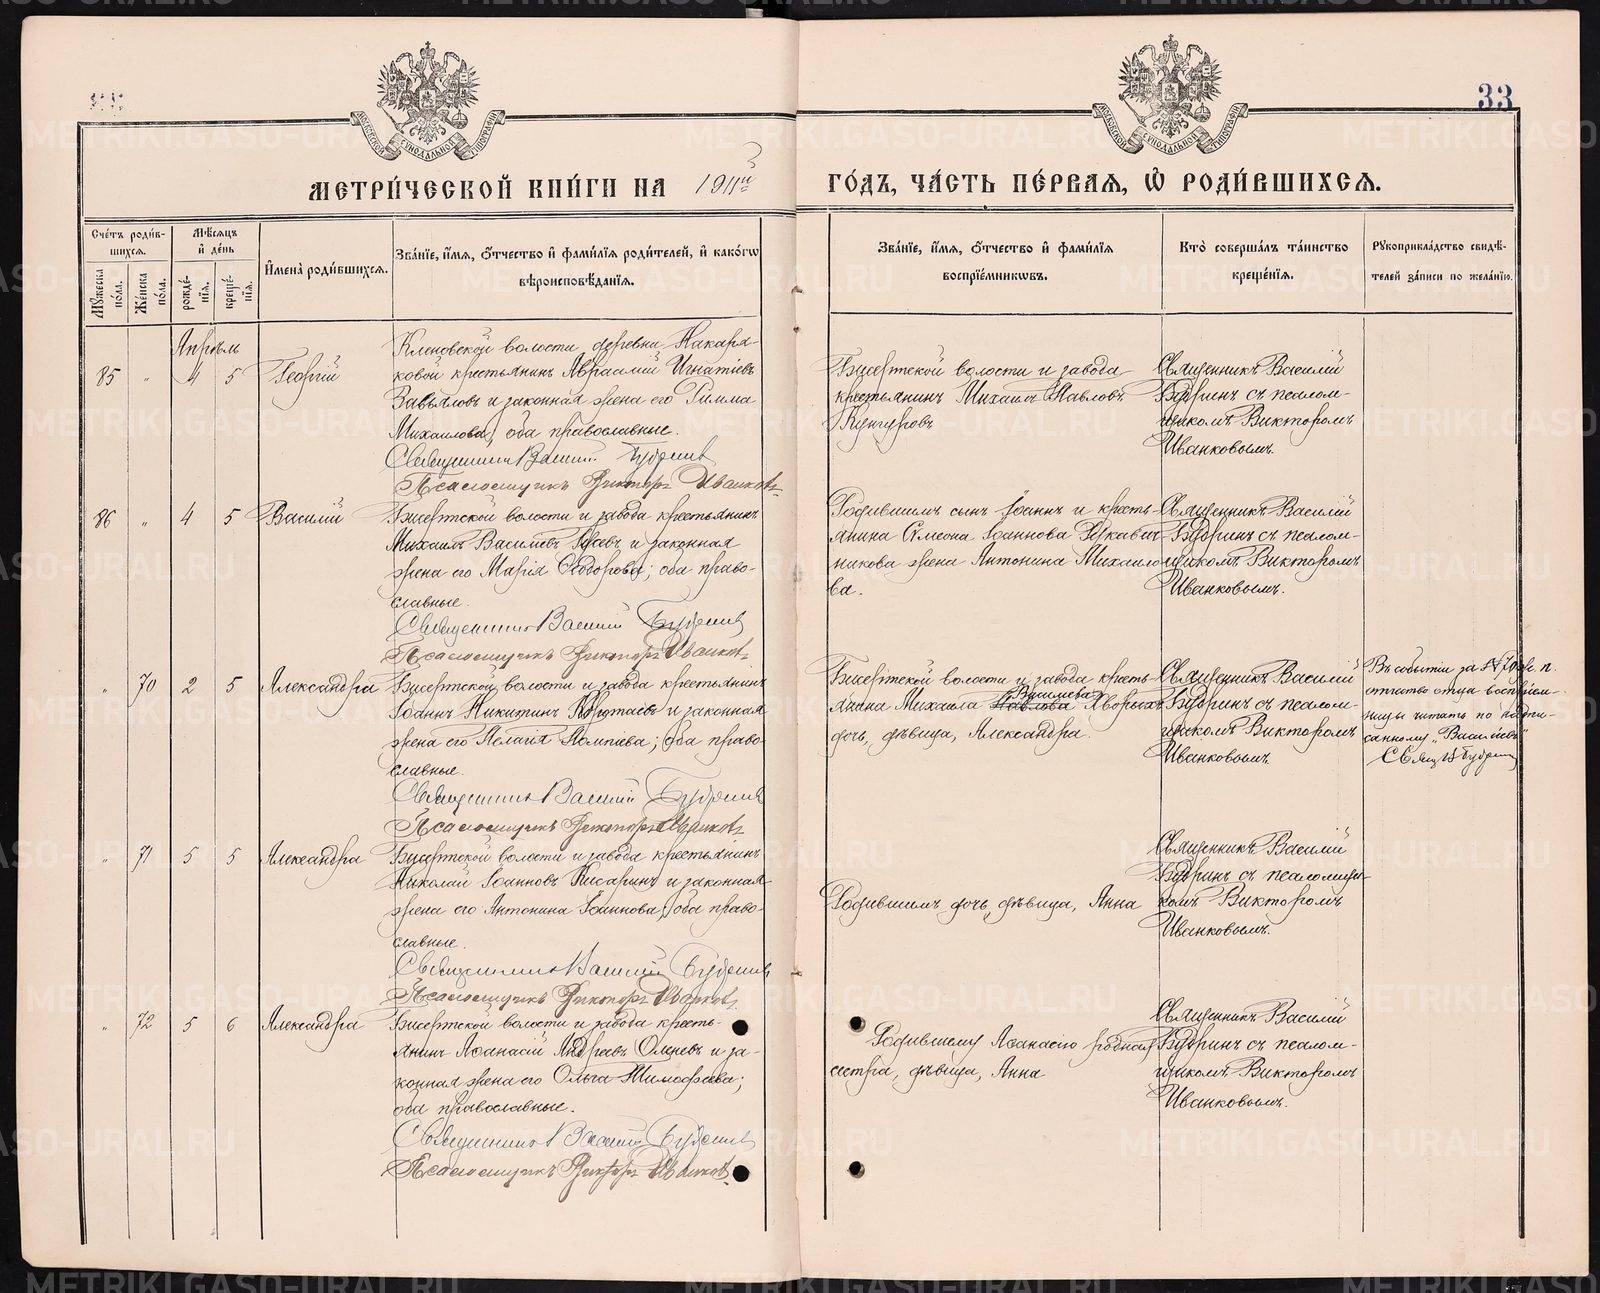 33
МОСКОВСКОЙ СѴНОДАЛЬНОЙ ТИПОГРАФІИ
МОСКОВСКОЙ СѴНОДАЛЬНОЙ ТИПОГРАФІИ
МЕТРИ́ЧЕСКОЙ КНИ́ГИ НА 1911й ГО́ДЪ, ЧА́СТЬ ПЕ́РВАЯ, Ѡ҆ РОДИ́ВШИХСЯ.
Сче́тъ роди́в-
шихся.
Мꙋжеска по́ла.
Же́нска по́ла.
Мѣ́сяцъ
и҆ де́нь
рожде́-
нїя.
креще́-
нїя.
И҆мена̀ роди́вшихся.
Зва́нїе, и҆́мя, ѻ҆́тчество и҆ фами́лїя роди́телей, и҆ како́гѡ
вѣроисповѣ́данїя.
Зва́нїе, и҆́мя, ѻ҆́тчество и҆ фами́лїя
воспрїе́мниковъ.
Кто̀ соверша́лъ та́инство
креще́нїя.
Рꙋкоприкла́дство свидѣ́-
телей за́писи по жела́нїю.
Апрѣль
85 " 4 5 Георгій
Кленовской волости деревни Накаря-
ковой крестьянинъ Авраамій Игнатіевъ
Завьяловъ и законная жена его Римма
Михаилова, оба православные.
Священникъ Василій Будринъ
Псаломщикъ Викторъ Иванковъ
Бисертской волости и завода
крестьянинъ Михаилъ Павловъ
Кунгуровъ
Священникъ Василій
Будринъ съ псалом-
щикомъ Викторомъ
Иванковымъ.
86 " 4 5 Василій
Бисертской волости и завода крестьянинъ
Михаилъ Василіевъ и законная
жена его Марія Ѳеодорова; оба право-
славные.
Священникъ Василій Будринъ
Псаломщикъ Викторъ Иванковъ
Родившимъ сынъ Іоаннъ и кресть-
янина Симеона Іоаннова
никова жена Антонина Михаило-
ва.
Священникъ Василій
Будринъ съ псалом-
щикомъ Викторомъ
Иванковымъ.
" 70 2 5 Александра
Бисертской волости и завода крестьянинъ
Іоаннъ Никитинъ и законная
жена его Пелагія; оба право-
славные.
Священникъ Василій Будринъ
Псаломщикъ Викторъ Иванковъ
Бисертской волости и завода кресть-
Василіева
янина Михаила Павлова
дочь, дѣвица, Александра.
Священникъ Василій
Будринъ съ псалом-
щикомъ Викторомъ
Иванковымъ.
Въ событіи за № 70 ж. п.
отчество отца воспріем-
ницы читать по подпи-
санному „Василіевъ"
Свящ. В. Будринъ
" 71 5 5 Александра
Бисертской волости и завода крестьянинъ
Николай Іоанновъ Писаринъ и законная
жена его Антонина Іоаннова; оба право-
славные.
Священникъ Василій Будринъ
Псаломщикъ Викторъ Иванковъ
Родившимъ дочь, дѣвица, Анна
Священникъ Василій
Будринъ съ псаломщи-
комъ Викторомъ
Иванковымъ.
" 72 5 6 Александра
Бисертской волости и завода кресть-
янинъ Аѳанасій Андреевъ Оленевъ и за-
конная жена его Ольга Тимоѳеева;
оба православные.
Священникъ Василій Будринъ
Псаломщикъ Викторъ Иванковъ
Родившему Аѳанасію родная
сестра, дѣвица, Анна
Священникъ Василій
Будринъ съ псалом-
щикомъ Викторомъ
Иванковымъ.
METRIKI.GASO-URAL.RU